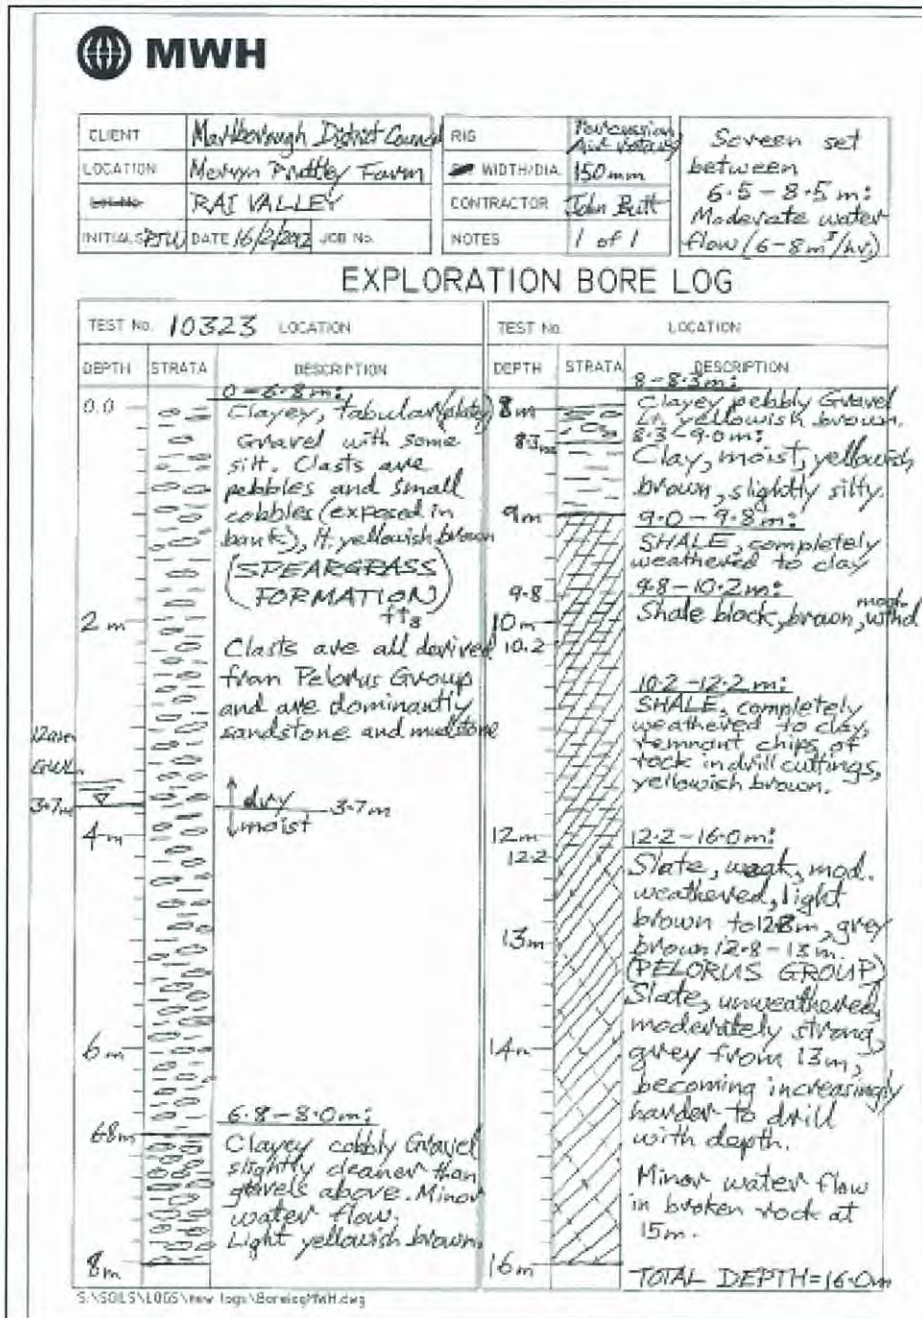 MWH
CLIENT Marlborough District Council
LOCATION Mervyn Farm
RAI VALLEY
INITIALS PJW DATE 16/2/2012 JOB No.
RIG Percussion Air rotary
WIDTH/DIA. 150mm
CONTRACTOR John Butt
NOTES 1 of 1
Screen set
between
6.5 – 8.5 m:
Moderate water
flow (6-8m³/hr)
EXPLORATION BORE LOG
TEST No. 10323 LOCATION
DEPTH STRATA DESCRIPTION
0 – 6.8m:
0.0 Clayey, tabular (platey)
Gravel with some
silt. Clasts are
pebbles and small
cobbles (exposed in
bank), lt. yellowish brown
(SPEARGRASS
FORMATION)
2 m
Clasts are all derived
from Pelorus Group
and are dominantly
sandstone and mudstone
GWL
3.7m
dry 3.7m
moist
4 m
6 m
6.8 – 8.0m:
6.8m
Clayey cobbly Gravel
slightly cleaner than
gravels above. Minor
water flow.
Light yellowish brown.
8m
TEST No. LOCATION
DEPTH STRATA DESCRIPTION
8 – 8.3m:
8m Clayey pebbly Gravel
Lt. yellowish brown.
8.3m 8.3 – 9.0m:
Clay, moist, yellowish
brown, slightly silty.
9m 9.0 – 9.8m:
SHALE, completely
weathered to clay
9.8 9.8 – 10.2m:
10m Shale block, brown, mod. wthd
10.2
10.2 – 12.2m:
SHALE, completely
weathered to clay,
remnant chips of
rock in drill cuttings,
yellowish brown.
12m 12.2 – 16.0m:
12.2
Slate, weak, mod.
weathered, light
brown to 12.8m, grey
13m brown 12.8 – 13m.
(PELORUS GROUP)
Slate, unweathered,
moderately strong,
14m grey from 13m,
becoming increasingly
harder to drill
with depth.
Minor water flow
in broken rock at
15m.
16m
TOTAL DEPTH = 16.0m
S:\SOILS\LOGS\new logs\BorelogMWH.dwg